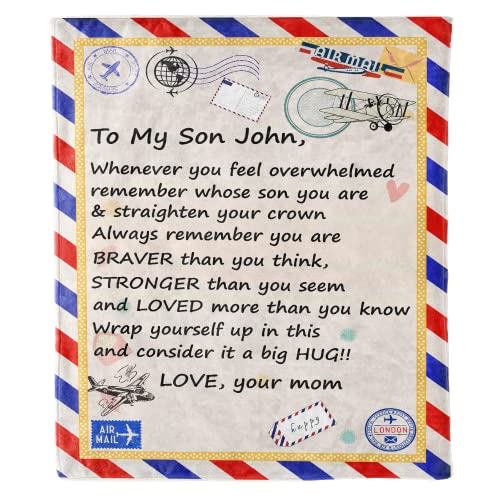 AIR MAIL
To My Son John,
Whenever you feel overwhelmed
remember whose son you are
& straighten your crown
Always remember you are
BRAVER than you think,
STRONGER than you seem
and LOVED more than you know
Wrap yourself up in this
and consider it a big HUG!!
LOVE, your mom
AIR
MAIL
happy
LONDON